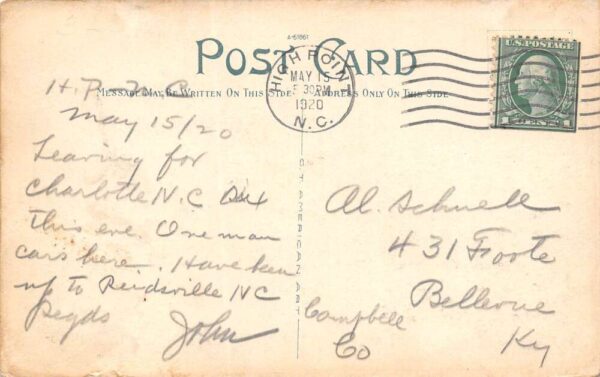 A-61861
POST CARD
MESSAGE MAY BE WRITTEN ON THIS SIDE
ADDRESS ONLY ON THIS SIDE
HIGH POINT
MAY 15
30PM
1920
N.C.
U.S. POSTAGE
1 CENT 1
H. P. N. C.
May 15/20
Leaving for
Charlotte N.C
this eve. One man
cars here. Have been
up to Reidsville NC
Regds
John
AMERICAN ART
Al. Schnell
431 Foote
Bellevue
Campbell
Co
Ky